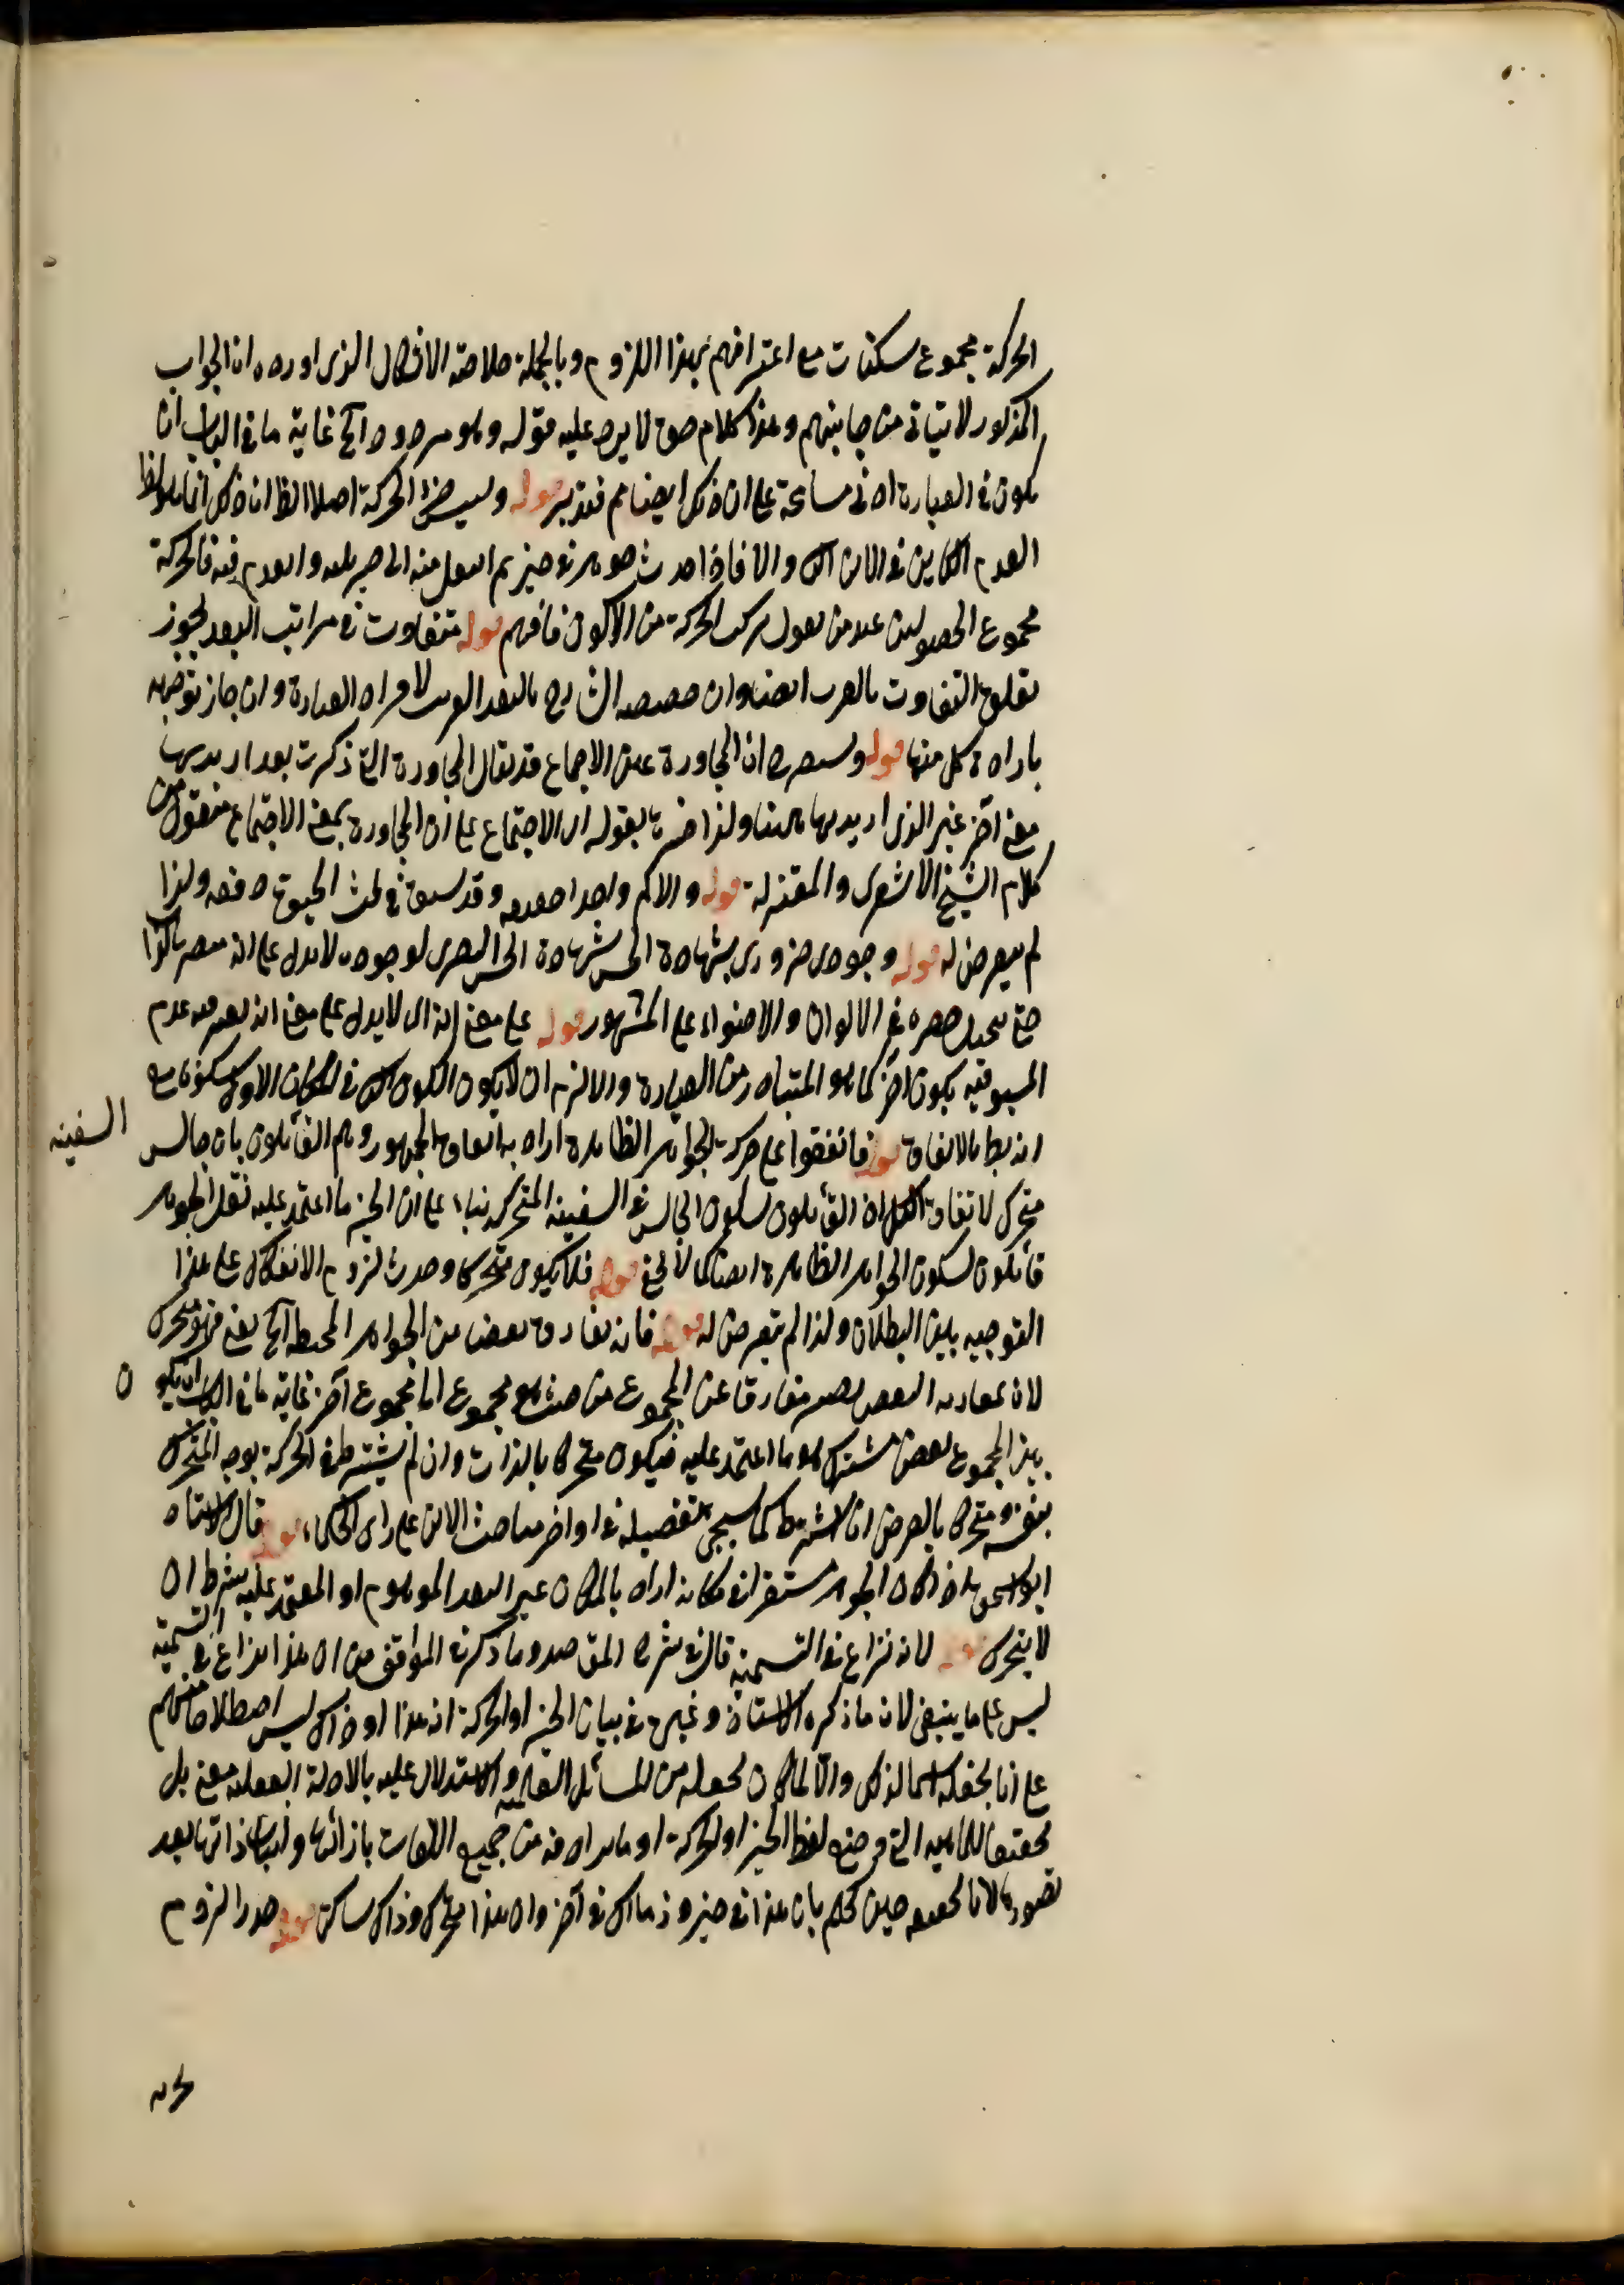 الحركة مجموع سكنات مع اعترافهم بهذا اللزوم وبالجملة خلاصة الاشكال الذى اورده ان الجواب
المذكور لا يتاتى من جانبهم وهذا كلام حق لا يرد عليه قوله وهو مردود آلخ غاية ما فى الباب ان
يكون فى العبارة ادنى مسامحة على ان ذلك ايضا مم فتدبر قوله وليس جزء الحركة اصلا الظ ان ذلك انما هو
العدم الكاين فى الان الث والا فاذا حدث جوهر فى حيز ثم انتقل منه الى حيز يليه وانعدم فيه فالحركة
مجموع الحصولين عند من يقول بتركب الحركة من الاكوان فافهم قوله متفاوت فى مراتب البعد يجوز
تعلق التفاوت بالقرب ايضا وان خصصه الشارح بالبعد القريب لافراد العبارة وان جاز توجيهه
بارادة كل منهما قوله وسيصرح ان المجاورة عين الاجتماع قد يقال المجاورة التى ذكرت بعد اريد بها
معنى آخر غير الذى اريد بها هنا ولذا فسرها بقوله اى الاجتماع على ان المجاورة بمعنى الاجتماع منقول من
كلام الشيخ الاشعرى والمعتزلة قوله والا كم واحدا وقد سبق فى بحث الحيوة دفعه ولذا
لم يتعرض له قوله وجودى ضرورى بشهادة الحس شهادة الحس البصرى لوجوده لا يدل على انه مبصر بالذات
حتى يختل حصره فى الالوان والاضواء على المشهور قوله على معنى انه اى لا يدل على معنى انه يعتبر فيه عدم
المسبوقية بكون آخر كما هو المتبادر من العبارة والا لزم ان لا يكون الكون الث فى المكان الاول سكونا مع
انه بط بالاتفاق قوله فاتفقوا على حركة الجواهر الظاهرة اراد به اتفاق الجمهور وهم القائلون بان جالس السفينه
متحرك لا اتفاق الكل اذ القائلون بسكون الجالس فى السفينة المتحركة بناء على ان الحيز ما اعتمد عليه ثقل الجوهر
قائلون بسكون الجواهر الظاهرة ايضا كما لا يخفى قوله فلا يكون متحركا وحدث لزوم الانفكاك على هذا
التوجيه بين البطلان ولذا لم يتعرض له قوله فانه يفارق بعضا من الجواهر المحيطة آلخ يعنى فهو متحرك
لان بمفارقة البعض يصير مفارقا عن المجموع من حيث هو مجموع اما مجموع آخر غاية ما فى الباب ان يكون
بين المجموع بعض مشترك هو ما اعتمد عليه فيكون متحركا بالذات وان لم يشترط فى الحركة توجه المتحرك
بنفسه ومتحركا بالعرض ان اشترط كما سيجئ تفصيله فى اواخر مباحث الاين على راى الحكماء قوله قال الاستاد
ابو اسحق اذا كان الجوهر مستقرا فى مكانه اراد بالمكان غير البعد الموهوم او المعتمد عليه بشرط ان
لا يتحرك قوله لانه نزاع فى التسمية قال فى شرح المقاصد وما ذكر فى المواقف من ان هذا نزاع فى التسمية
ليس على ما ينبغى لان ما ذكره الاستاذ وغيره فى بيان الحيز او الحركة انه هذا او ذاك ليس اصطلاحا منهم
على انا نجعله اسما لذلك والا لما كان لجعله من المسائل العلمية والاستدلال عليه بالادلة العقلية معنى بل
تحقيقا للماهية التى وضع لفظ الحيز او الحركة او ما يرادفه من جميع اللغات بازائها واثباتا لذاتياتها بعد
تصورها لانا حين نحكم بان هذا فى حيز وذاك فى آخر وان هذا متحرك وذاك ساكن قوله حذرا لزوم